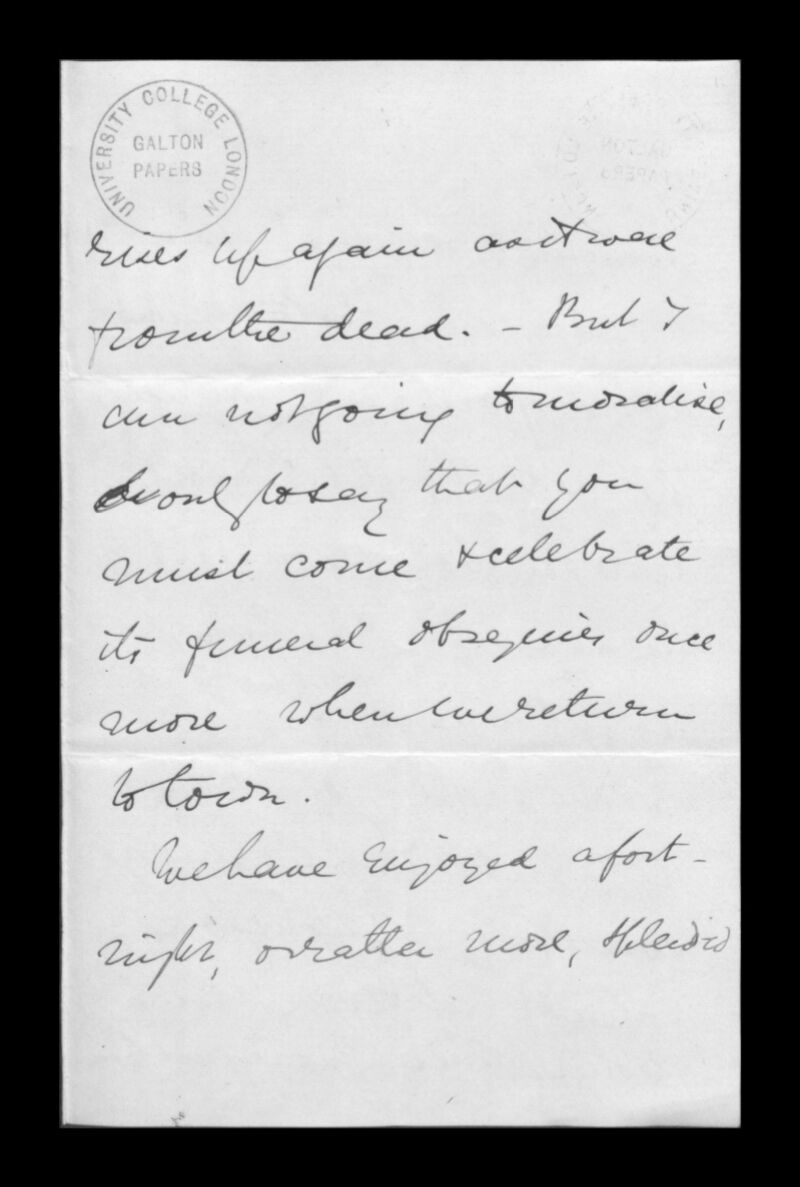 UNIVERSITY COLLEGE LONDON
GALTON
PAPERS
rises up again as it were
from the dead. – But I
am not going to moralise,
only to say that you
must come & celebrate
its funeral obsequies once
more when we return
to town.
We have enjoyed a fort-
night, or rather more, splendid